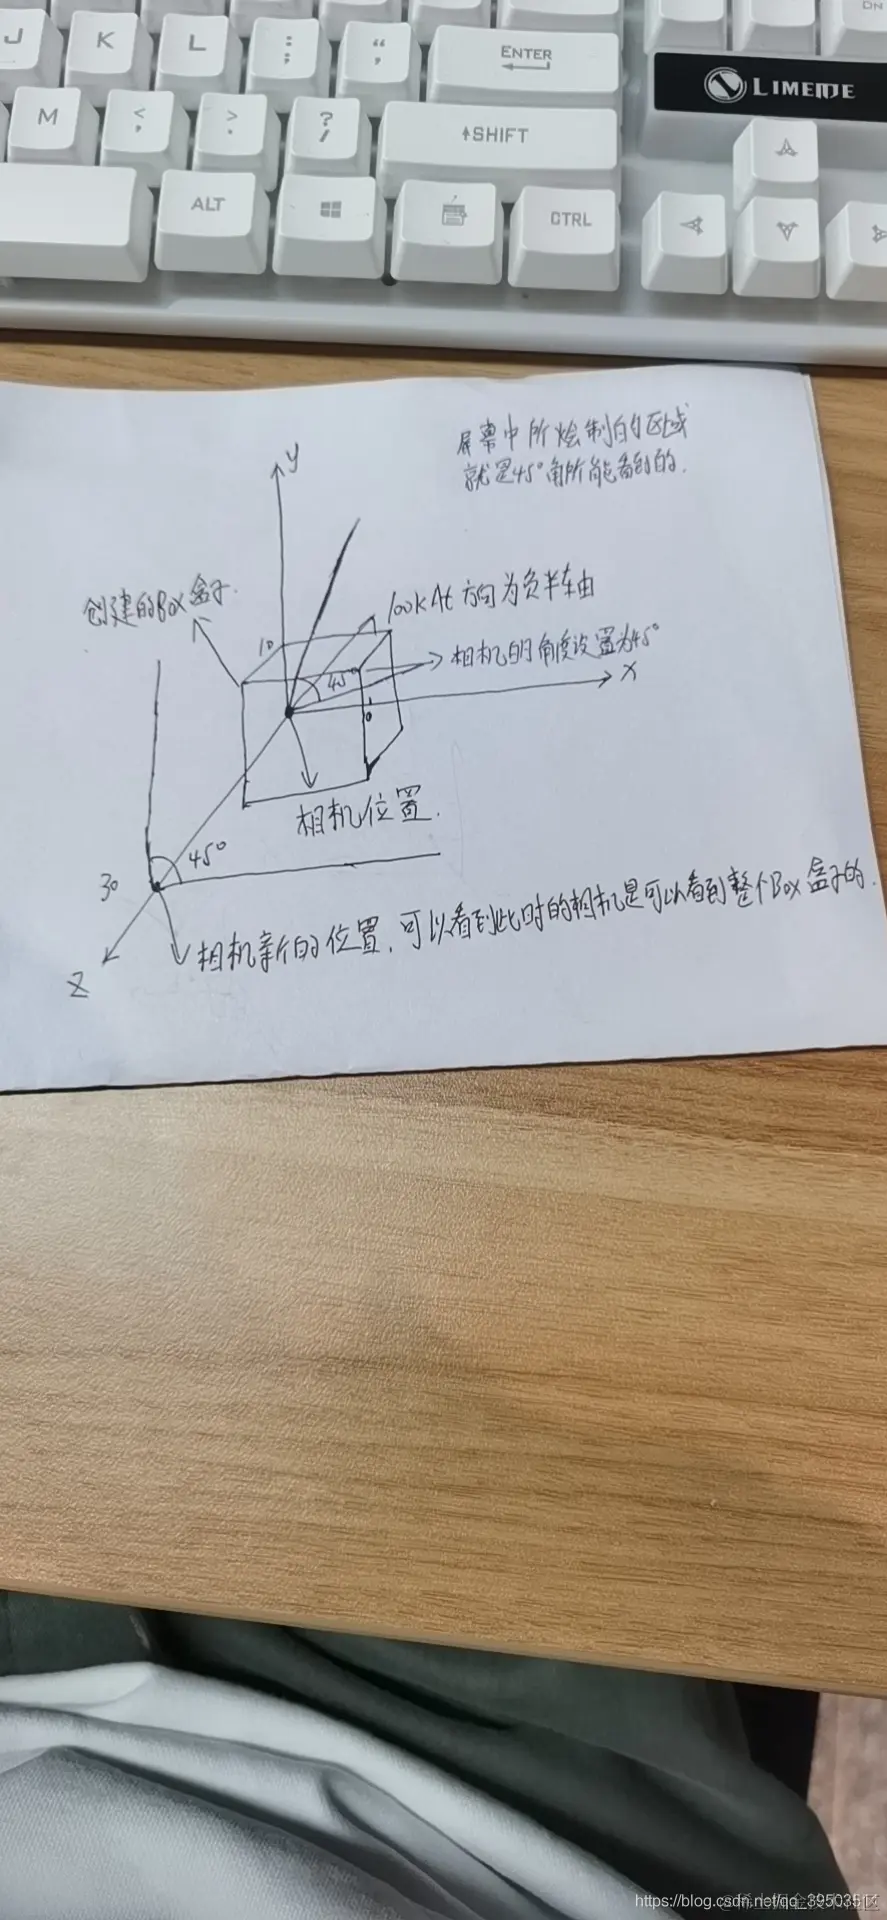 J K L : ; “ , ENTER
LIMEIDE
M < , > . ? / SHIFT
ALT CTRL
DN
屏幕中所绘制的区域
就是45°角所能看到的.
y
创建的Box盒子.
look At 方向为负半轴
10
相机的角度设置为45°
45°
x
10
相机位置.
45°
30
相机新的位置,可以看到此时的相机是可以看到整个Box盒子的.
z
https://blog.csdn.net/qq_395035